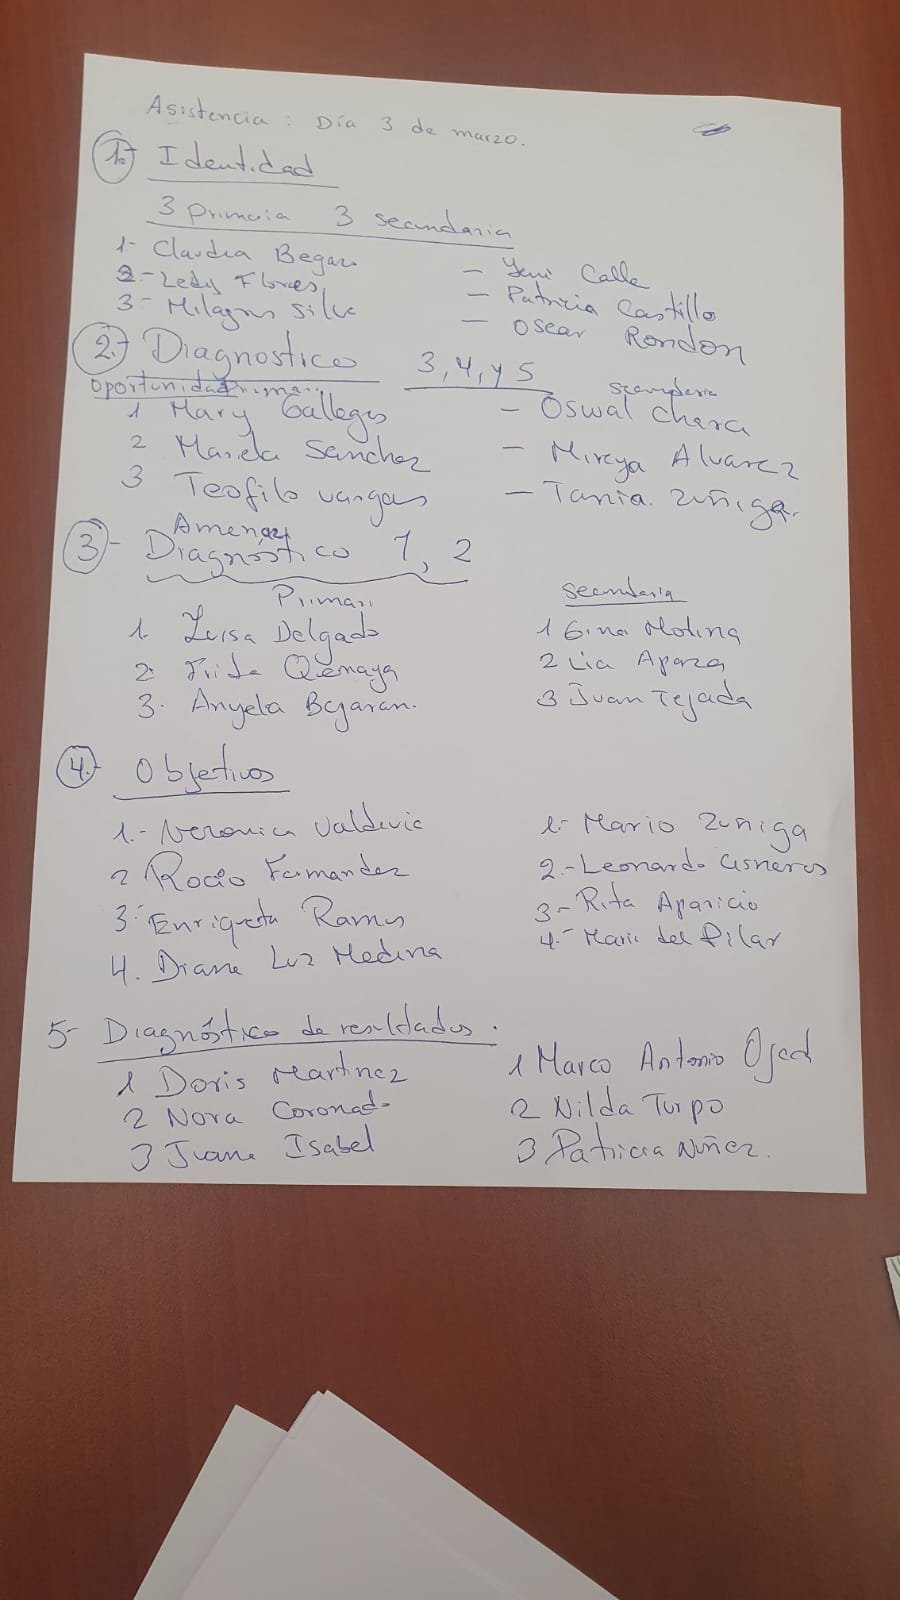 Asistencia: Día 3 de marzo.
1.- Identidad
3 primaria 3 secundaria
1- Claudia Begazo
2- Ledy Flores
3- Milagros Silva
- Yeni Calle
- Patricia Castillo
- Oscar Rondon
2.- Diagnostico 3, 4, y 5
Oportunidad Primaria
1 Mary Gallegos
2 Mariela Sanchez
3 Teofilo Vargas
secundaria
- Oswal Chara
- Mireya Alvarez
- Tania Zuñiga.
Amenaz
3- Diagnóstico 1, 2
Primari
1. Luisa Delgado
2. Frida Qenaya
3. Angela Bejaran.
secundaria
1 Gina Molina
2 Lia Apaza
3 Juan Tejada
4.- Objetivos
1.- Veronica Valdivia
2 Rocío Fernandez
3- Enriqueta Ramos
4. Diana Luz Medina
1.- Mario Zuñiga
2.- Leonardo Cisneros
3- Rita Aparicio
4.- Maria del Pilar
5- Diagnóstico de resultados.
1 Doris Martinez
2 Nora Coronado
3 Juana Isabel
1 Marco Antonio
2 Nilda Turpo
3 Patricia Nuñez.